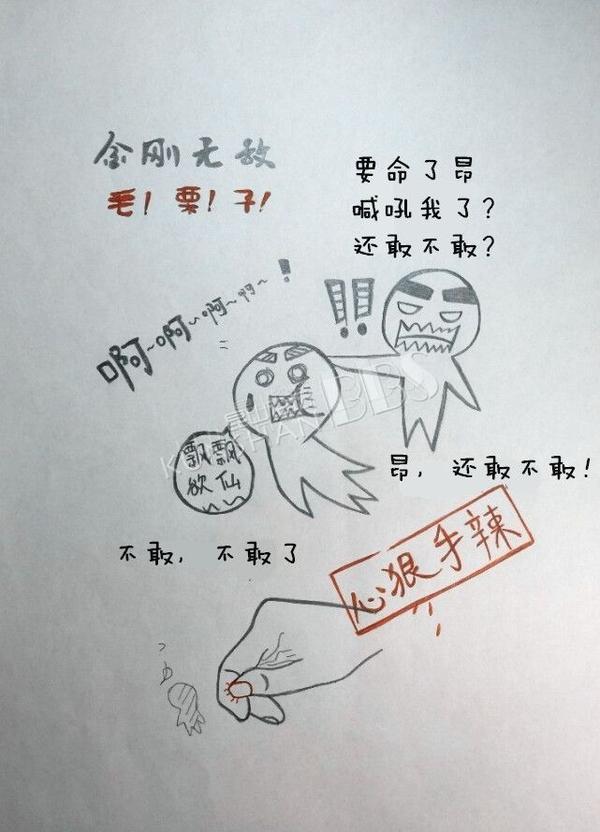 金刚无敌
毛！栗！子！
要命了昂
喊吼我了？
还敢不敢？
啊~啊~啊~啊~！
!!
飘飘
欲仙
昂，还敢不敢！
不敢，不敢了
心狠手辣
昆山论坛BBS
KUNSHAN